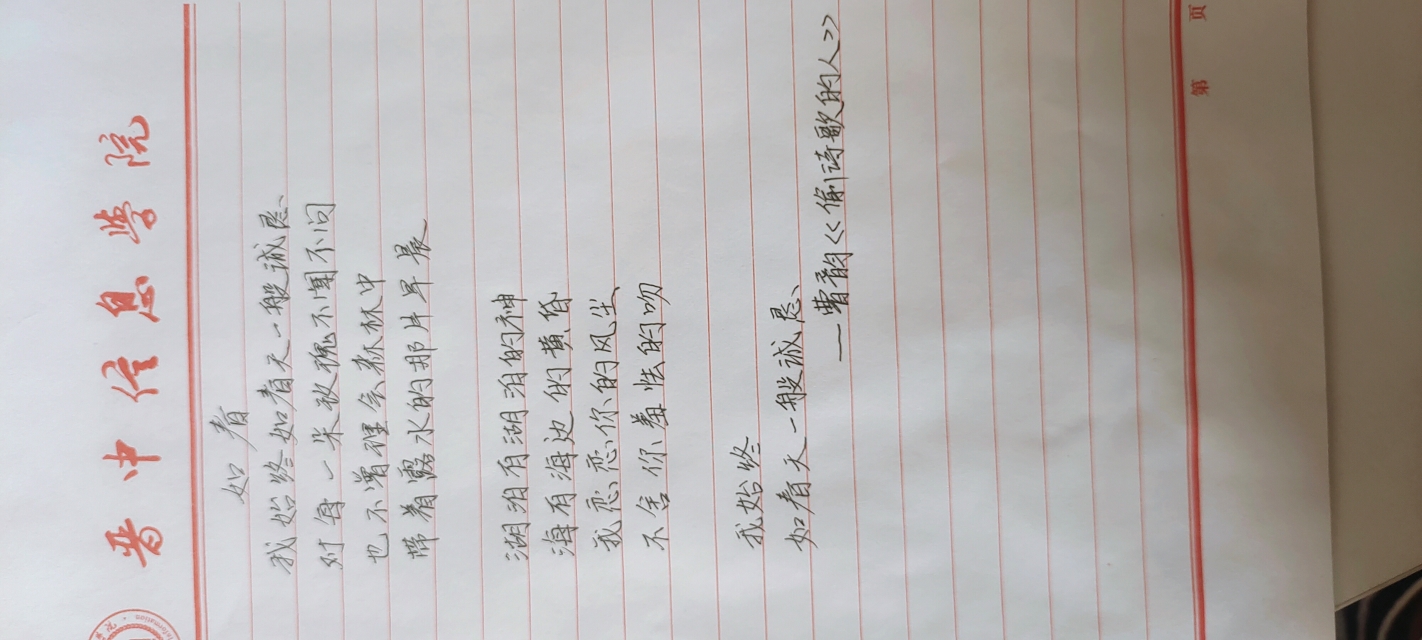 晋中信息学院
Information
如春
我始终如春天一般诚恳、
对每一朵玫瑰不闻不问
也不曾理会森林中
带着露水的那片早晨
湖泊有湖泊的神
海有海边的黄昏
我恋恋你的风尘、
不舍你羞怯的吻
我始终
如春天一般诚恳、
—曹韵<<偷诗歌的人>>
第 页